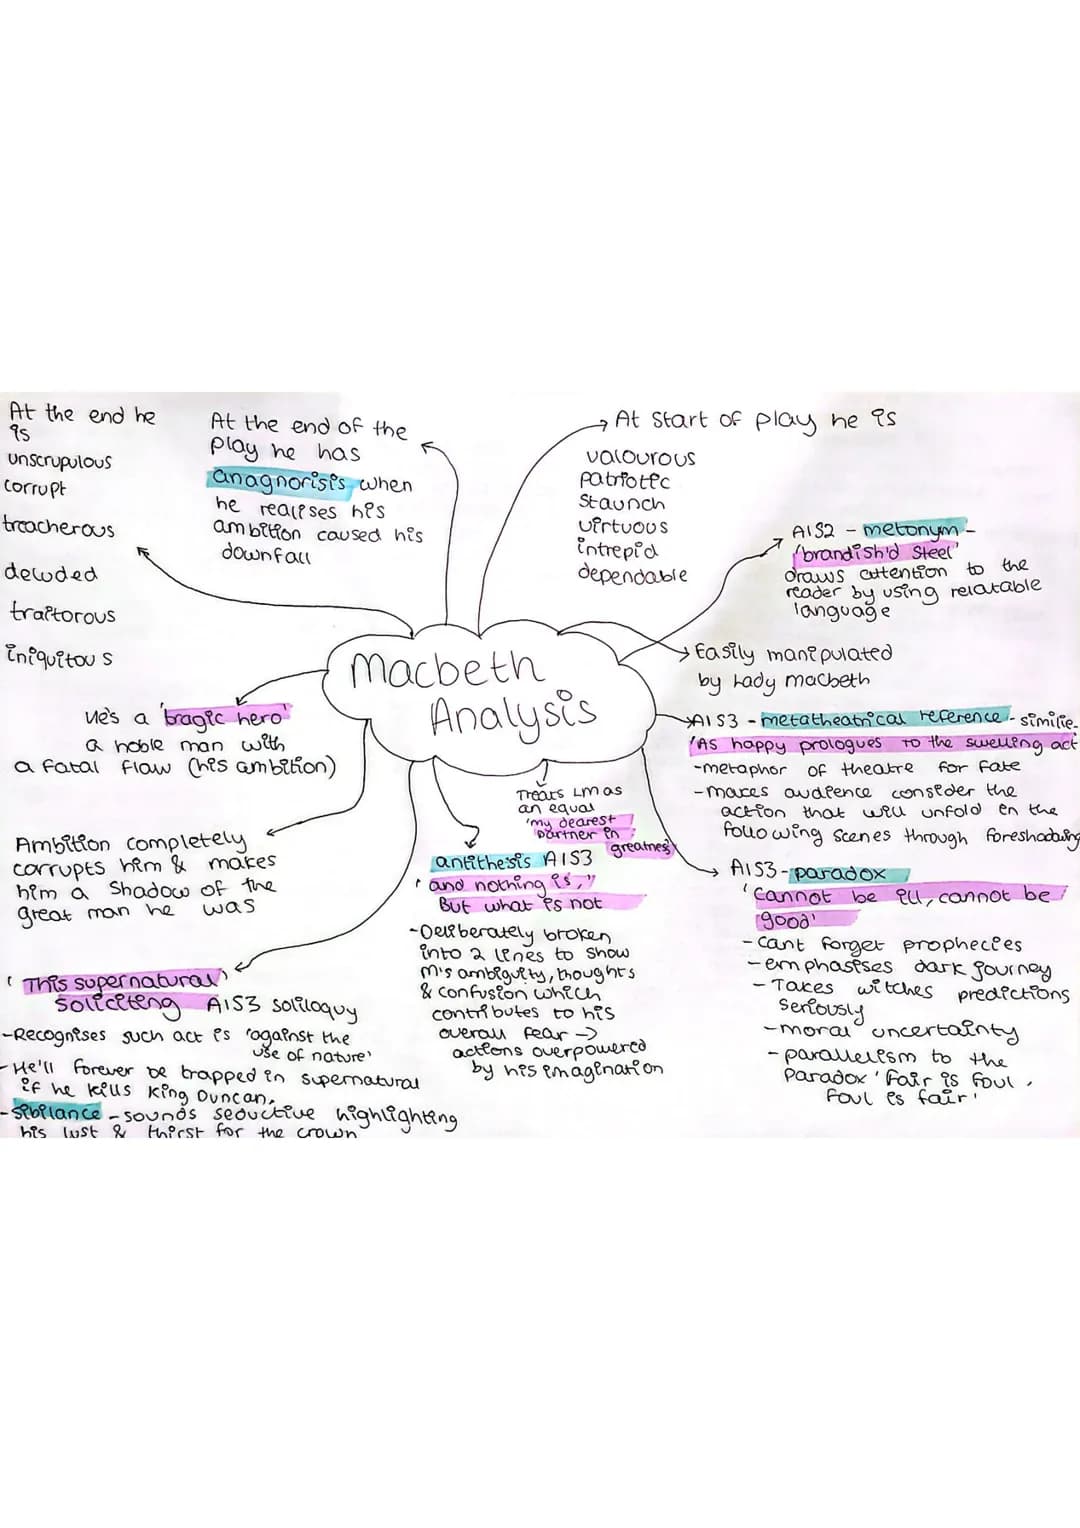 Macbeth
Analysis
At the end he
is
unscrupulous
corrupt
treacherous
deluded
traitorous
iniquitous
At the end of the
play he has
anagnorisis when
he realises his
ambition caused his
downfall
At start of play he is
valourous
patriotic
staunch
virtuous
intrepid
dependable
A1S2 - metonym -
'brandish'd steel'
draws attention to the
reader by using relatable
language
Easily manipulated
by Lady macbeth
A1S3 - metatheatrical reference - similie.
'As happy prologues to the swelling act
-metaphor of theatre for fate
-makes audience consider the
action that will unfold in the
following scenes through foreshadowing
A1S3- paradox
'Cannot be ill, cannot be
good'
- cant forget prophecies
- emphasises dark journey
- Takes witches predictions
seriously
- moral uncertainty
- parallelism to the
paradox 'fair is foul,
foul is fair'
Treats LM as
an equal
'my dearest
partner in
greatness'
antithesis A1S3
'and nothing is,"
But what is not
-Deliberately broken
into 2 lines to show
M's ambiguity, thoughts
& confusion which
contributes to his
overall fear ->
actions overpowered
by his imagination
He's a 'tragic hero'
a noble man with
a fatal flaw (his ambition)
Ambition completely
corrupts him & makes
him a shadow of the
great man he was
'This supernatural
soliciting' A1S3 soliloquy
-Recognises such act is 'against the
use of nature'
-He'll forever be trapped in supernatural
if he kills King Duncan.
-sibilance - sounds seductive highlighting
his lust & thirst for the crown